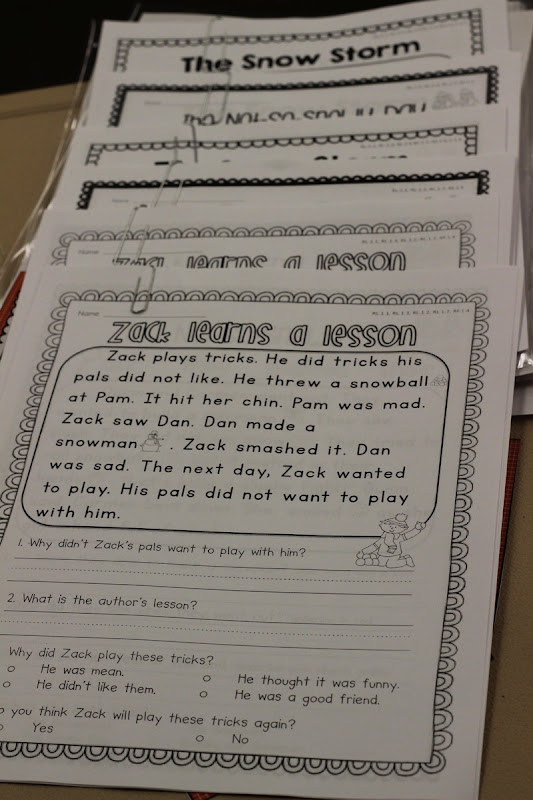 The Snow Storm
The Not-so-
Name
Name
learns a lesson
Name
Zack learns a lesson
Zack plays tricks. He did tricks his
pals did not like. He threw a snowball
at Pam. It hit her chin. Pam was mad.
Zack saw Dan. Dan made a
snowman . Zack smashed it. Dan
was sad. The next day, Zack wanted
to play. His pals did not want to play
with him.
1. Why didn't Zack's pals want to play with him?
2. What is the author's lesson?
Why did Zack play these tricks?
He was mean.
He thought it was funny.
He didn't like them.
He was a good friend.
you think Zack will play these tricks again?
Yes
No